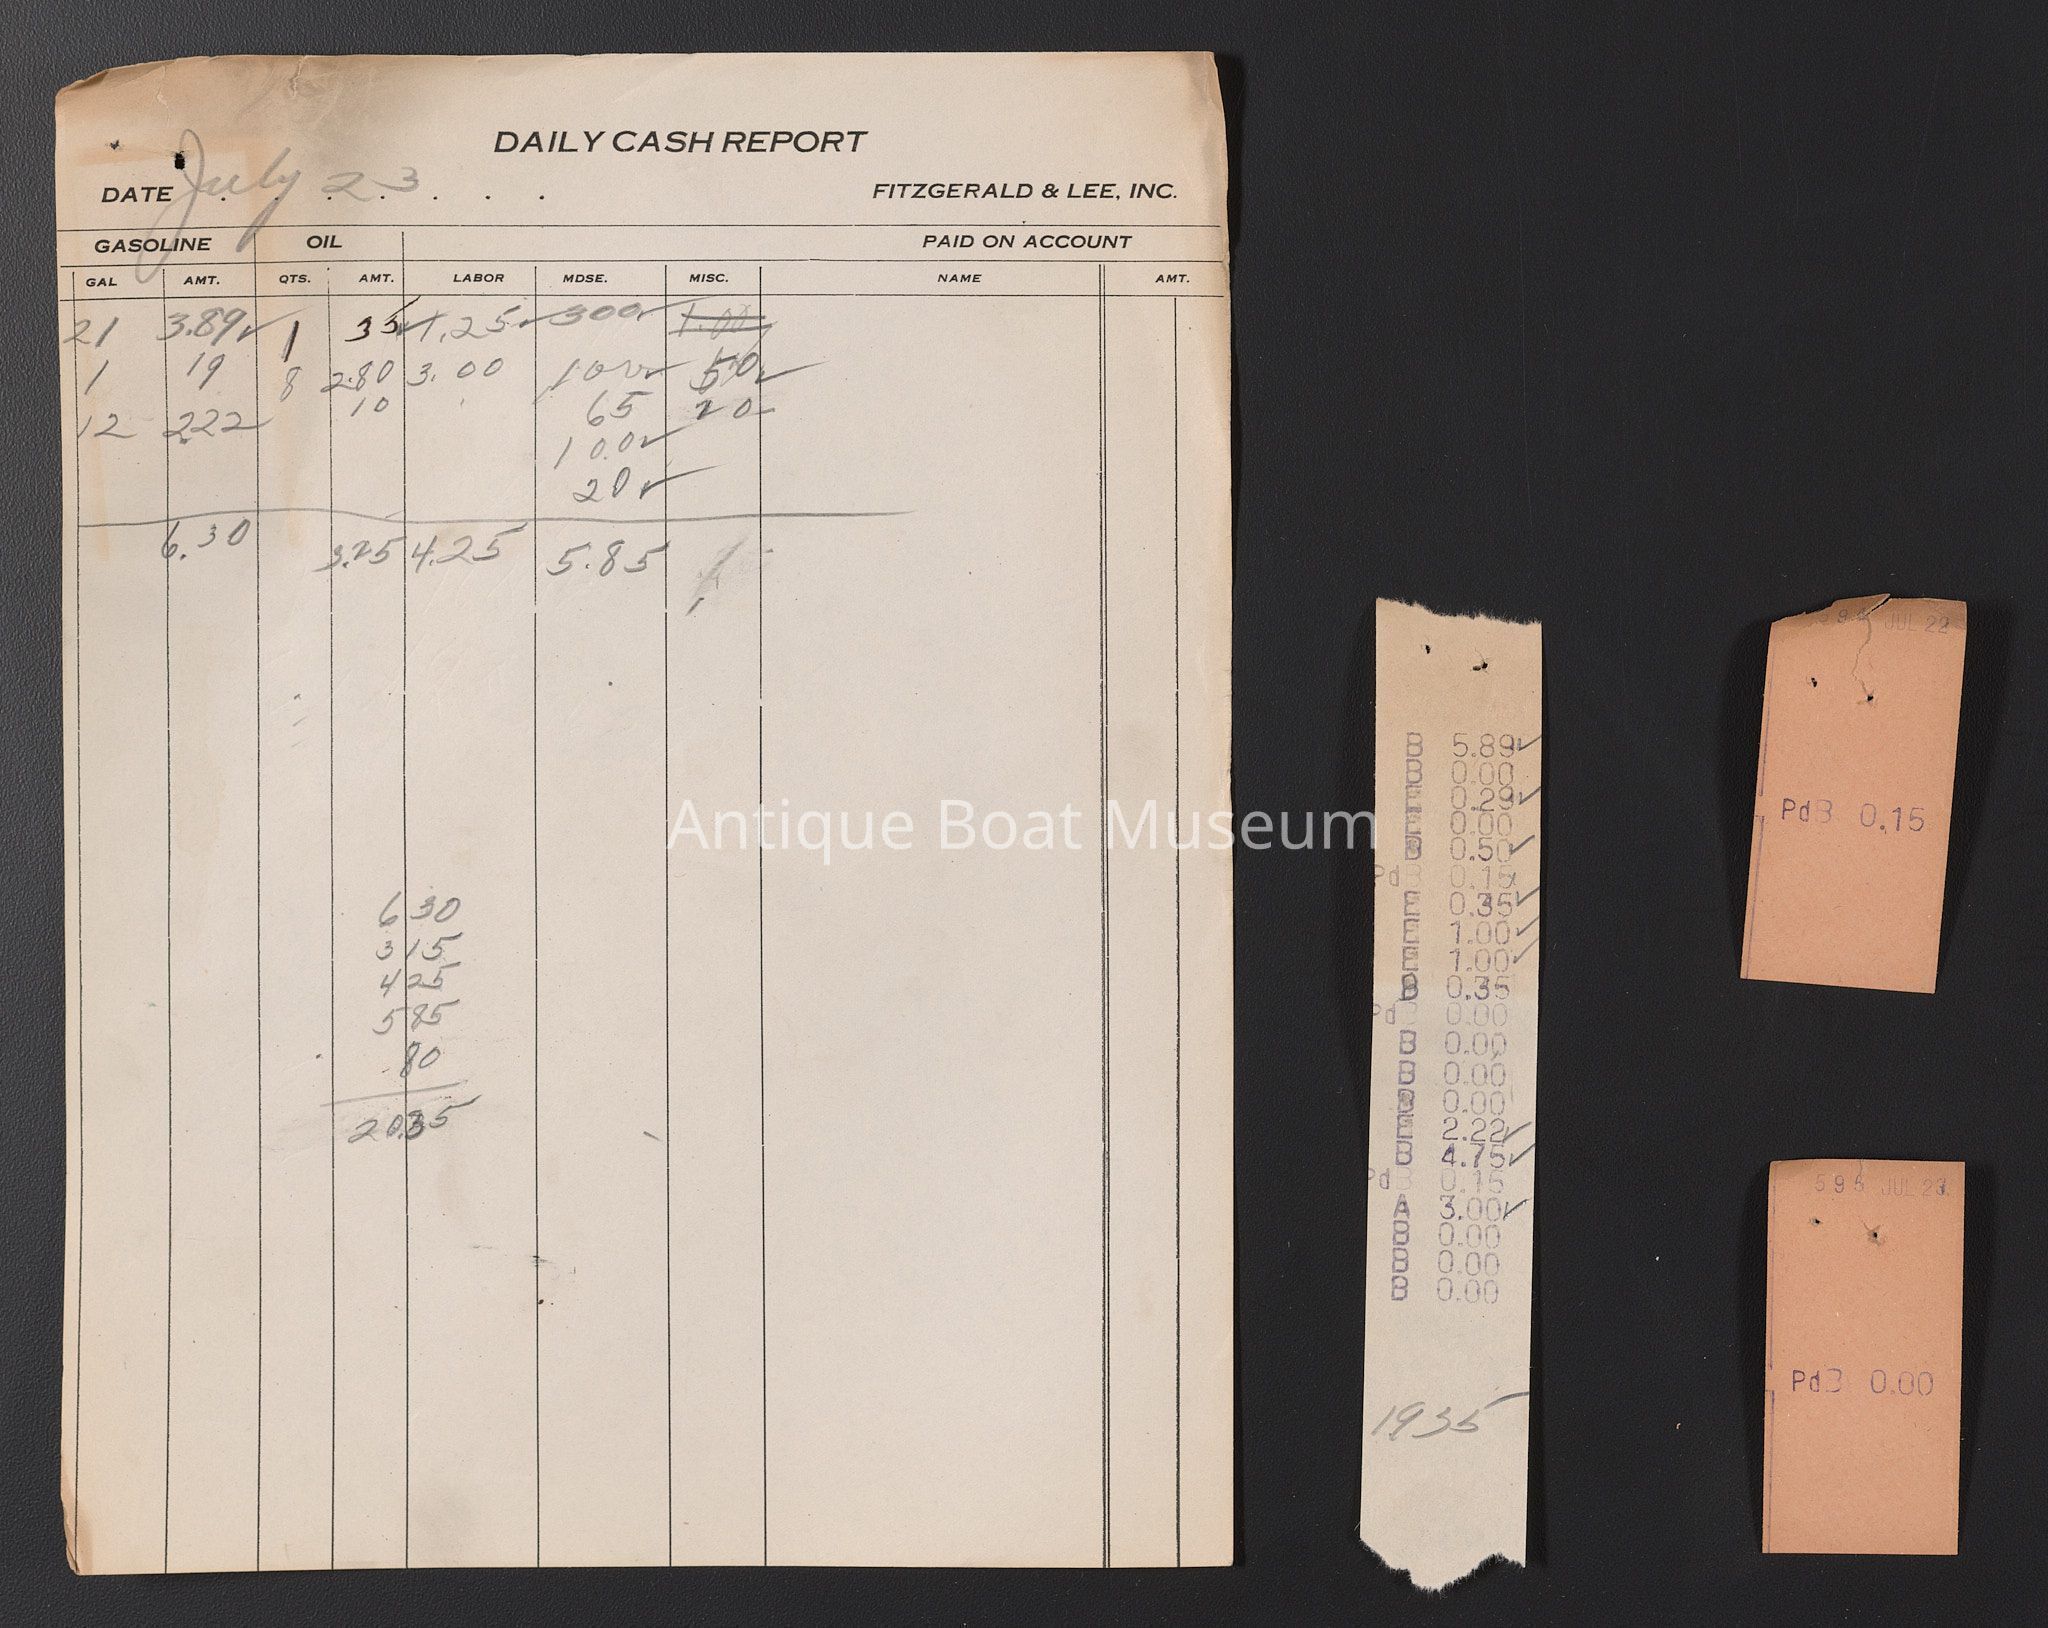 DAILY CASH REPORT
DATE July 23 . . . FITZGERALD & LEE, INC.
GASOLINE OIL PAID ON ACCOUNT
GAL AMT. QTS. AMT. LABOR MDSE. MISC. NAME AMT.
21 3.89✓ 1 35✓ 1.25✓ 300✓ 1.00
1 19 8 2.80 3.00 100✓ 50✓
12 2.22✓ 10 65 20
1 0.0✓
20✓
6.30 3.25 4.25 5.85
6 30
3 15
4 25
5 85
80
20.35
B 5.89✓
B 0.00
E 0.29✓
E 0.00
B 0.50✓
Pd 0.15
E 0.35✓
E 1.00✓
E 1.00✓
B 0.35
Pd 0.00
B 0.00
B 0.00
B 0.00
E 2.22✓
B 4.75✓
Pd 0.15
A 3.00✓
B 0.00
B 0.00
B 0.00
1935
JUL 22
PdB 0.15
595 JUL 23
PdB 0.00
Antique Boat Museum